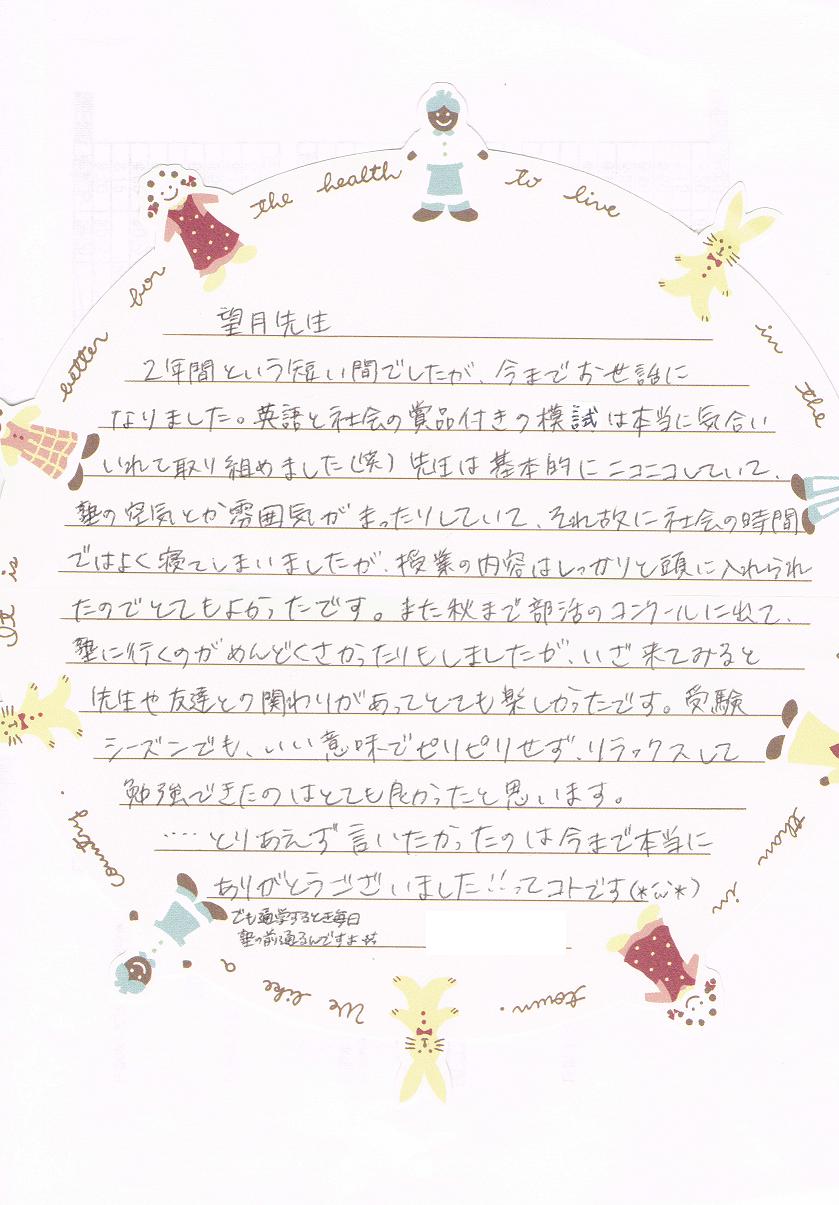 望月先生
2年間という短い間でしたが、今までお世話に
なりました。英語と社会の賞品付きの模試は本当に気合い
いれて取り組めました(笑) 先生は基本的にニコニコしていて、
塾の空気とか雰囲気がまったりしていて、それ故に社会の時間
ではよく寝てしまいましたが、授業の内容はしっかりと頭に入れられ
たのでとてもよかったです。また秋まで部活のコンクールに出て、
塾に行くのがめんどくさかったりもしましたが、いざ来てみると
先生や友達との関わりがあってとても楽しかったです。受験
シーズンでも、いい意味でピリピリせず、リラックスして
勉強できたのはとても良かったと思います。
……とりあえず言いたかったのは今まで本当に
ありがとうございました!!ってコトです(*´ω`*)
でも通学するとき毎日
塾の前通るんですよ
It is better for the health to live in the country than in town. We like a